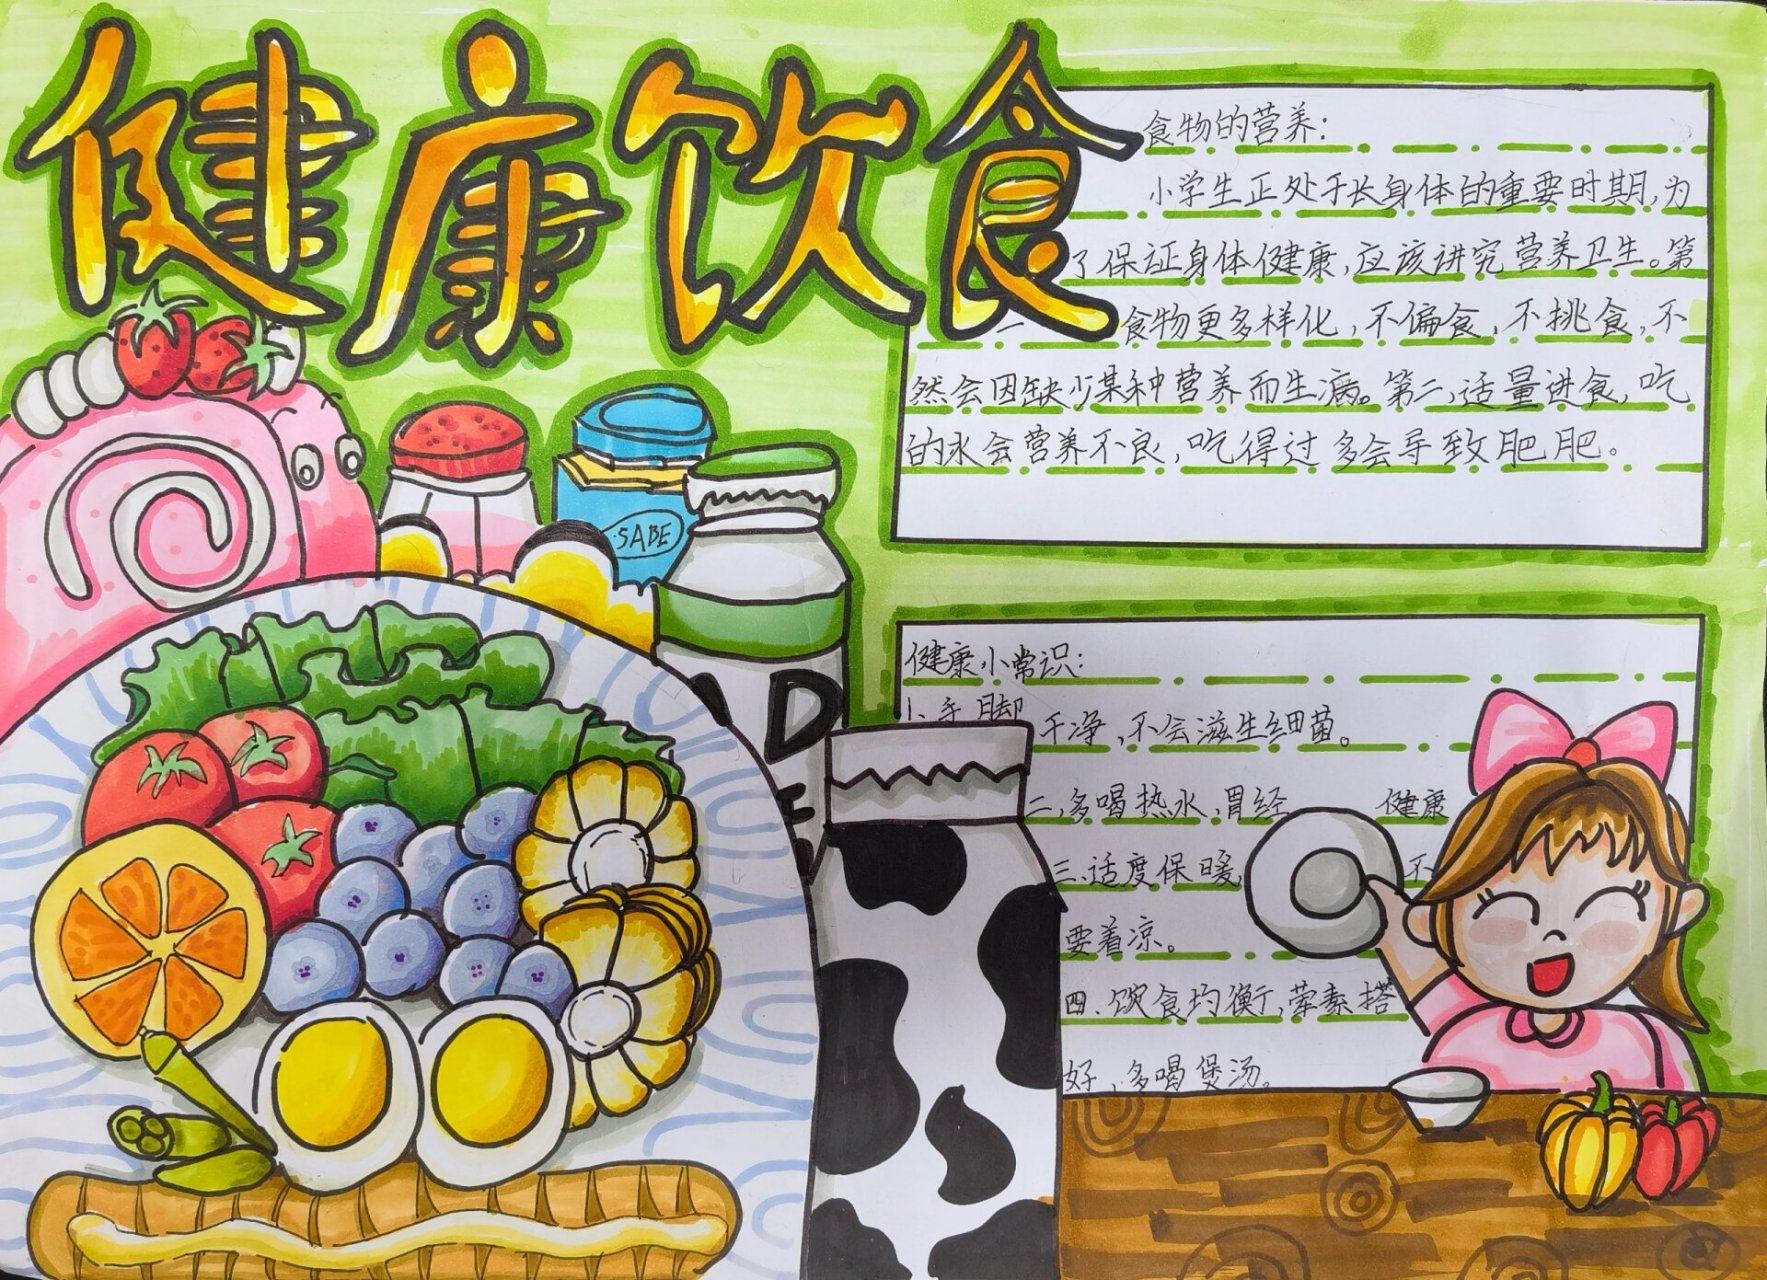 健康饮食
食物的营养:
小学生正处于长身体的重要时期,为
了保证身体健康,应该讲究营养卫生。第
一 食物更多样化,不偏食,不挑食,不
然会因缺少某种营养而生病。第二,适量进食,吃
的水会营养不良,吃得过多会导致肥肥。
SABE
健康小常识:
一、手脚干净,不会滋生细菌。
二,多喝热水,胃经 健康
三.适度保暖, 不
要着凉。
四.饮食均衡,荤素搭
好,多喝煲汤。
AD